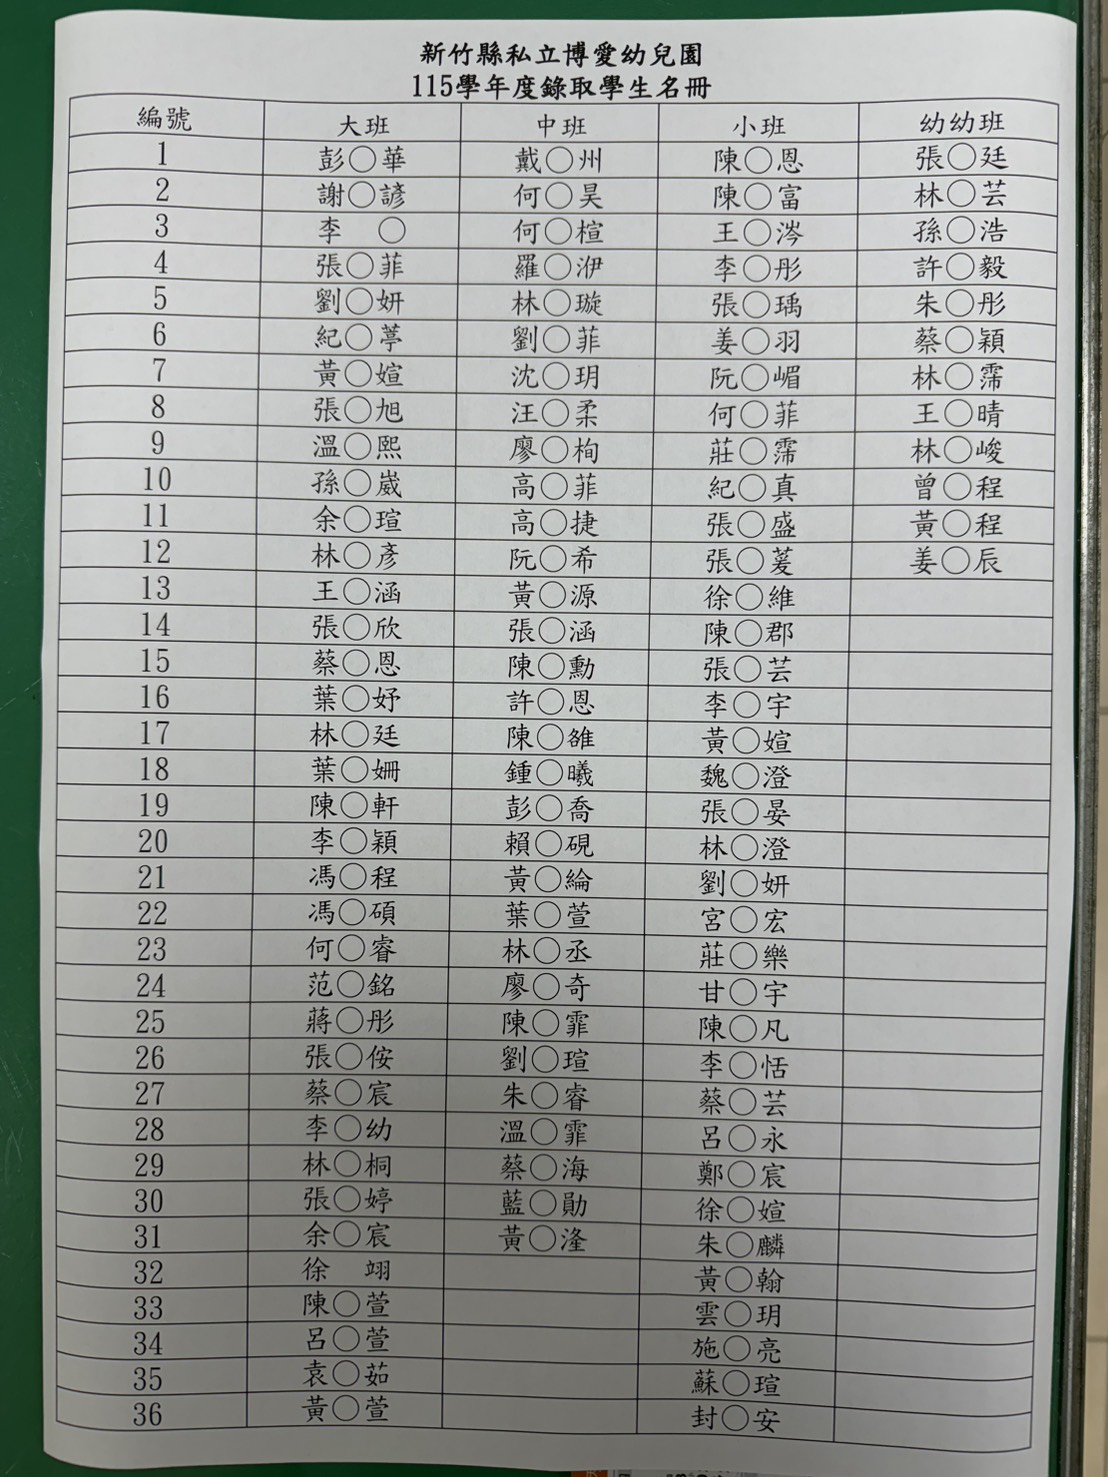 新竹縣私立博愛幼兒園
115學年度錄取學生名冊
編號 大班 中班 小班 幼幼班
1 彭○華 戴○州 陳○恩 張○廷
2 謝○諺 何○昊 陳○富 林○芸
3 李　○ 何○楦 王○涔 孫○浩
4 張○菲 羅○洢 李○彤 許○毅
5 劉○妍 林○璇 張○瑀 朱○彤
6 紀○葶 劉○菲 姜○羽 蔡○穎
7 黃○媗 沈○玥 阮○嵋 林○霈
8 張○旭 汪○柔 何○菲 王○晴
9 溫○熙 廖○栒 莊○霈 林○峻
10 孫○崴 高○菲 紀○真 曾○程
11 余○瑄 高○捷 張○盛 黃○程
12 林○彥 阮○希 張○萲 姜○辰
13 王○涵 黃○源 徐○維
14 張○欣 張○涵 陳○郡
15 蔡○恩 陳○勳 張○芸
16 葉○妤 許○恩 李○宇
17 林○廷 陳○雒 黃○媗
18 葉○姍 鍾○曦 魏○澄
19 陳○軒 彭○喬 張○晏
20 李○穎 賴○硯 林○澄
21 馮○程 黃○綸 劉○妍
22 馮○碩 葉○萱 宮○宏
23 何○睿 林○丞 莊○樂
24 范○銘 廖○奇 甘○宇
25 蔣○彤 陳○霏 陳○凡
26 張○侒 劉○瑄 李○恬
27 蔡○宸 朱○睿 蔡○芸
28 李○幼 溫○霏 呂○永
29 林○桐 蔡○海 鄭○宸
30 張○婷 藍○勛 徐○媗
31 余○宸 黃○湰 朱○麟
32 徐　翊 黃○翰
33 陳○萱 雲○玥
34 呂○萱 施○亮
35 袁○茹 蘇○瑄
36 黃○萱 封○安